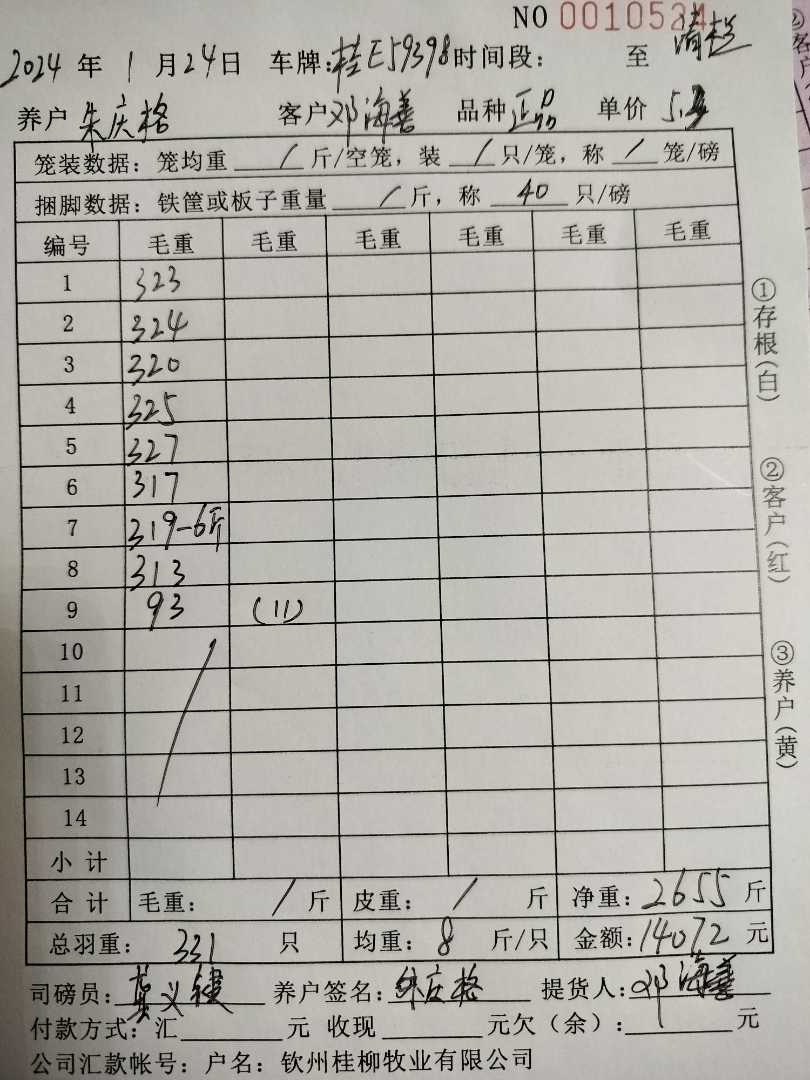 NO 0010524
2024 年 1 月 24 日 车牌:桂E59398 时间段: 至
养户 朱庆格 客户 邓海善 品种 正品 单价 5.3
笼装数据: 笼均重 / 斤/空笼, 装 / 只/笼, 称 / 笼/磅
捆脚数据: 铁筐或板子重量 / 斤, 称 40 只/磅
编号 毛重 毛重 毛重 毛重 毛重 毛重
1 323
2 324
3 320
4 325
5 327
6 317
7 319-6斤
8 313
9 93 (11)
10
11
12
13
14
小 计
合 计 毛重: / 斤 皮重: / 斤 净重: 2655 斤
总羽重: 331 只 均重: 8 斤/只 金额: 14072 元
司磅员: 义键 养户签名: 朱庆格 提货人: 邓海善
付款方式: 汇 元 收现 元欠(余): 元
公司汇款帐号: 户名: 钦州桂柳牧业有限公司
①存根(白)
②客户(红)
③养户(黄)